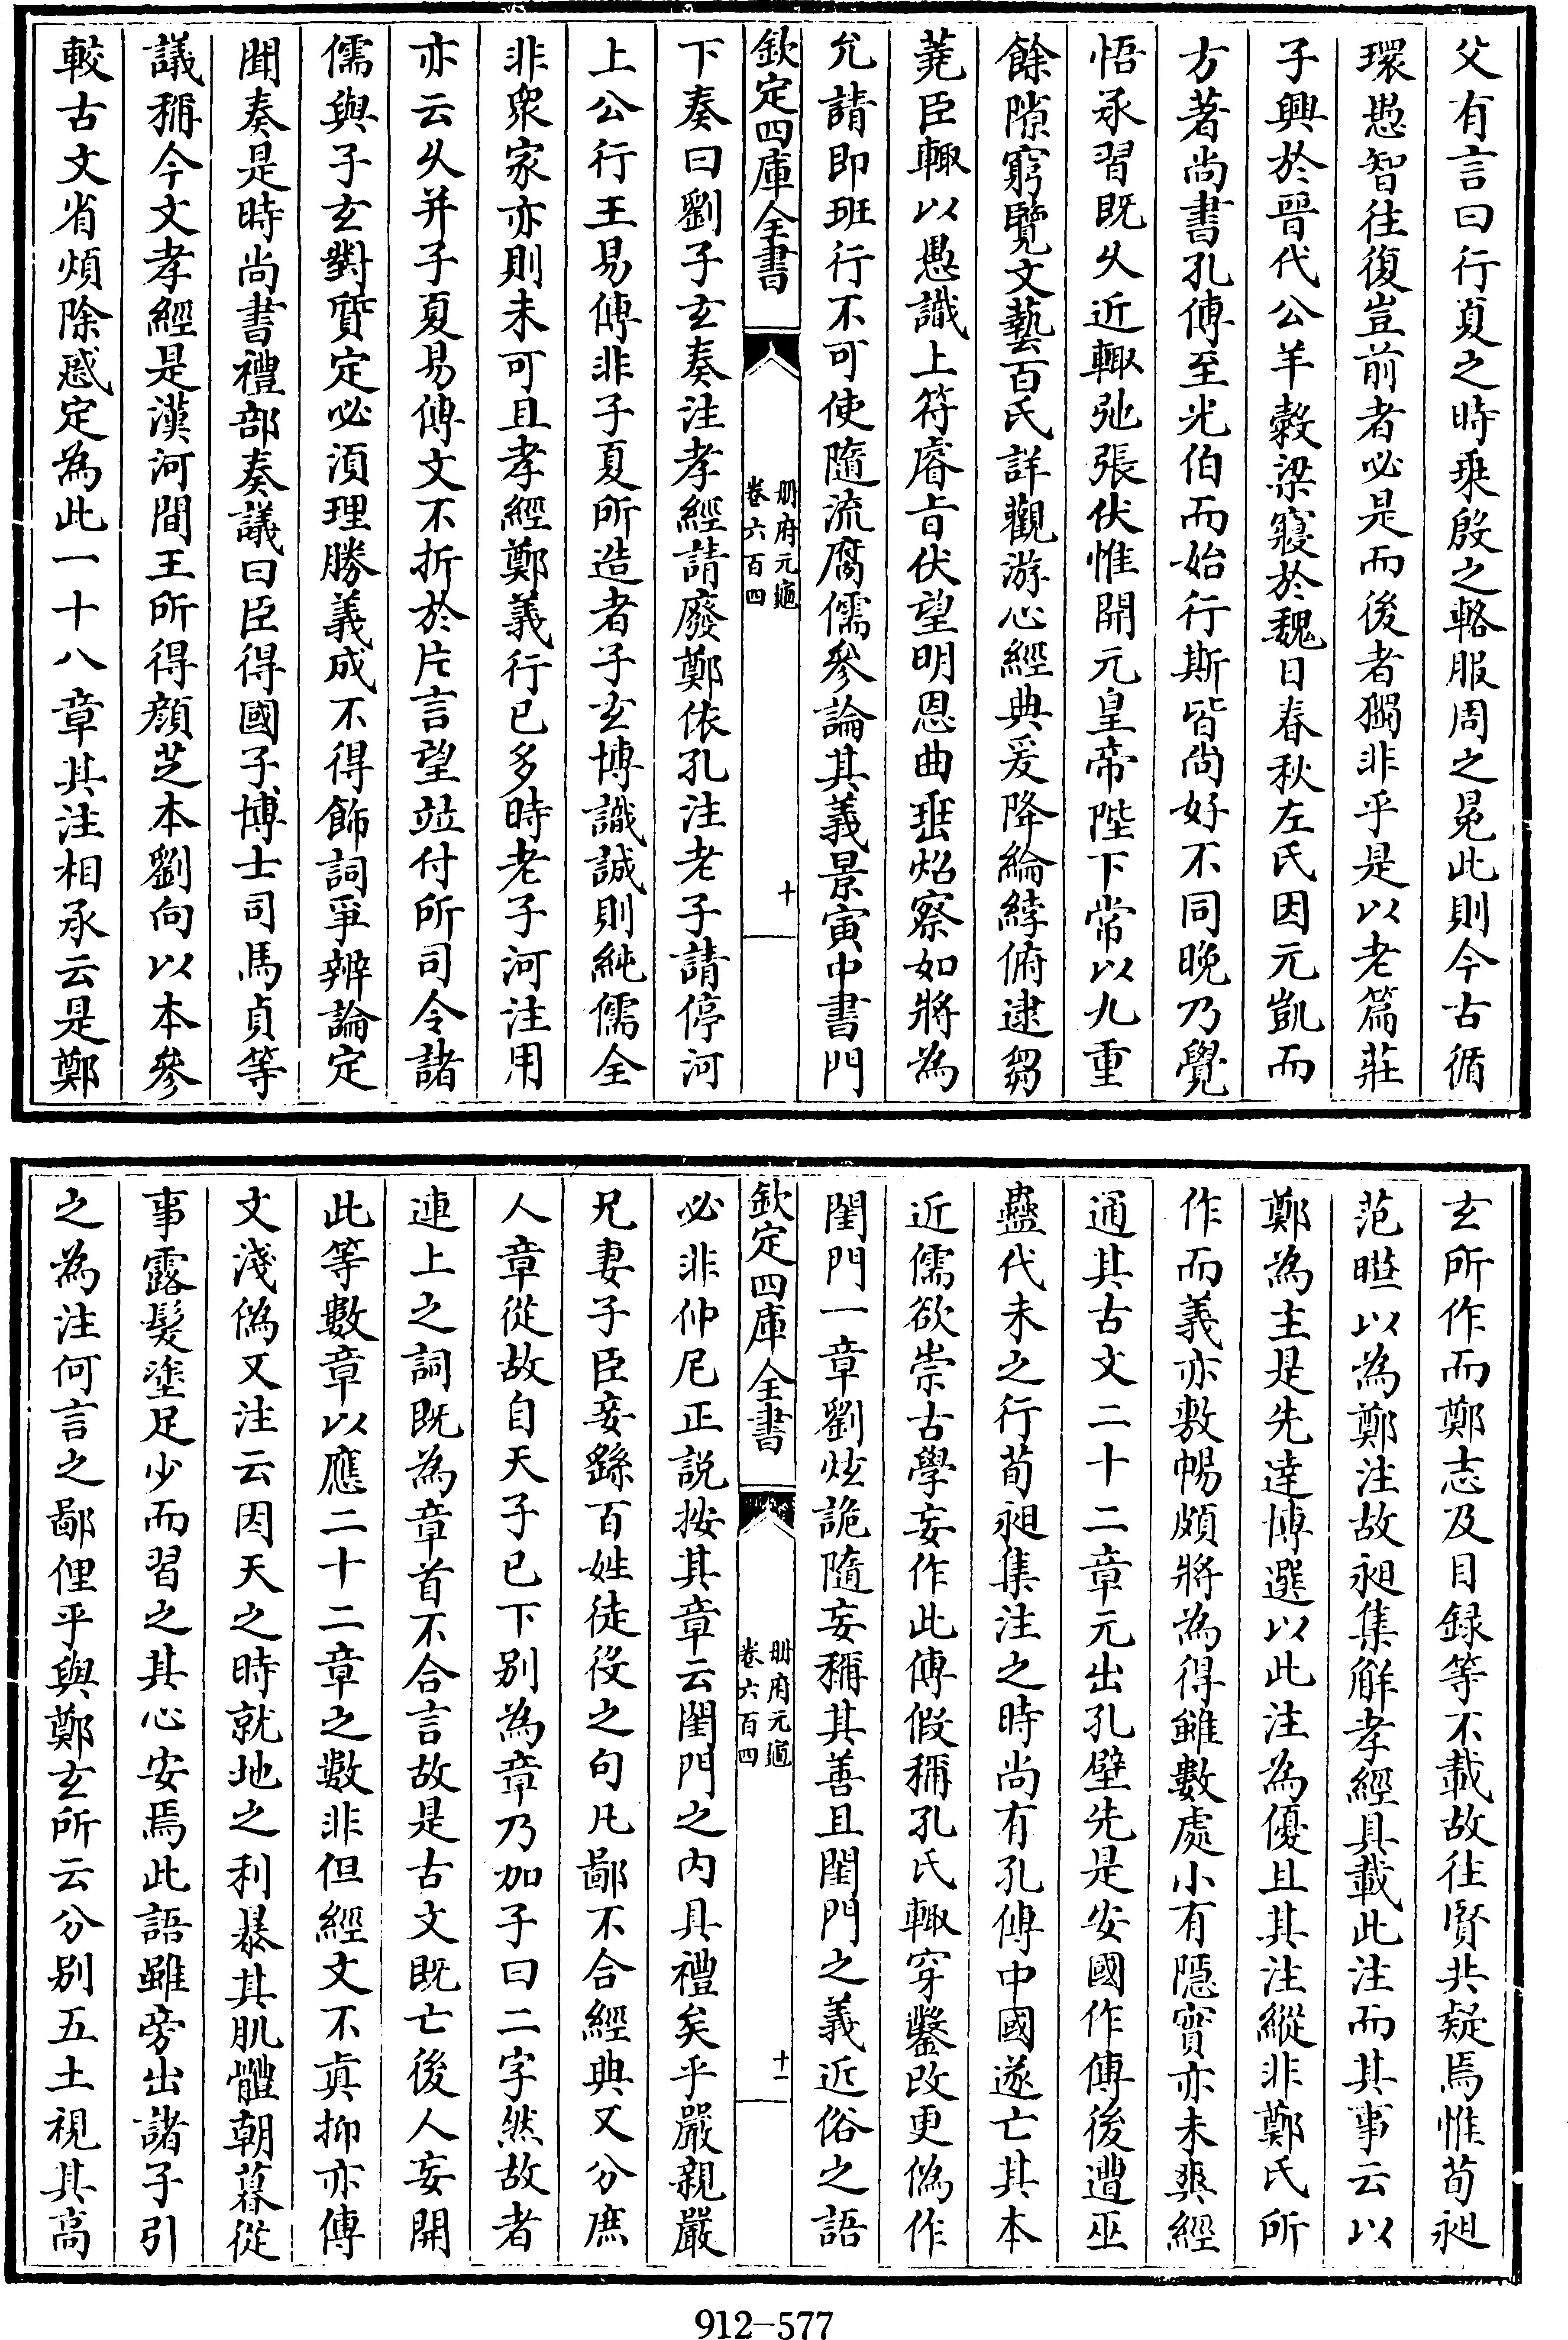 父有言曰行夏之時乘殷之輅服周之冕此則今古循
環愚智往復豈前者必是而後者獨非乎是以老篇莊
子興於晉代公羊穀梁寢於魏日春秋左氏因元凱而
方著尚書孔傳至光伯而始行斯皆尚好不同晚乃覺
悟承習既久近輙弛張伏惟開元皇帝陛下常以九重
餘隙窮覽文藝百氏詳觀游心經典爰降綸綍俯逮芻
蕘臣輙以愚識上符睿旨伏望明恩曲垂炤察如將為
允請即班行不可使隨流腐儒參論其義景寅中書門
欽定四庫全書
册府元龜
卷六百四
十
下奏曰劉子玄奏注孝經請廢鄭依孔注老子請停河
上公行王易傳非子夏所造者子玄博識誠則純儒全
非衆家亦則未可且孝經鄭義行已多時老子河注用
亦云久并子夏易傳文不折於片言望竝付所司令諸
儒與子玄對質定必須理勝義成不得飾詞爭辨論定
聞奏是時尚書禮部奏議曰臣得國子博士司馬貞等
議稱今文孝經是漢河間王所得顔芝本劉向以本參
較古文省煩除惑定為此一十八章其注相承云是鄭
玄所作而鄭志及目録等不載故往賢共疑焉惟荀昶
范曄以為鄭注故昶集解孝經具載此注而其事云以
鄭為主是先達博選以此注為優且其注縱非鄭氏所
作而義亦敷暢頗將為得雖數處小有隱實亦未爽經
通其古文二十二章元出孔壁先是安國作傳後遭巫
蠱代未之行荀昶集注之時尚有孔傳中國遂亡其本
近儒欲崇古學妄作此傳假稱孔氏輙穿鑿改更偽作
閨門一章劉炫詭隨妄稱其善且閨門之義近俗之語
欽定四庫全書
册府元龜
卷六百四
十一
必非仲尼正説按其章云閨門之内具禮矣乎嚴親嚴
兄妻子臣妾繇百姓徒役之句凡鄙不合經典又分庶
人章從故自天子已下别為章乃加子曰二字然故者
連上之詞既為章首不合言故是古文既亡後人妄開
此等數章以應二十二章之數非但經文不眞抑亦傳
文淺偽又注云因天之時就地之利暴其肌體朝暮從
事露髮塗足少而習之其心安焉此語雖旁出諸子引
之為注何言之鄙俚乎與鄭玄所云分别五土視其高
912-577